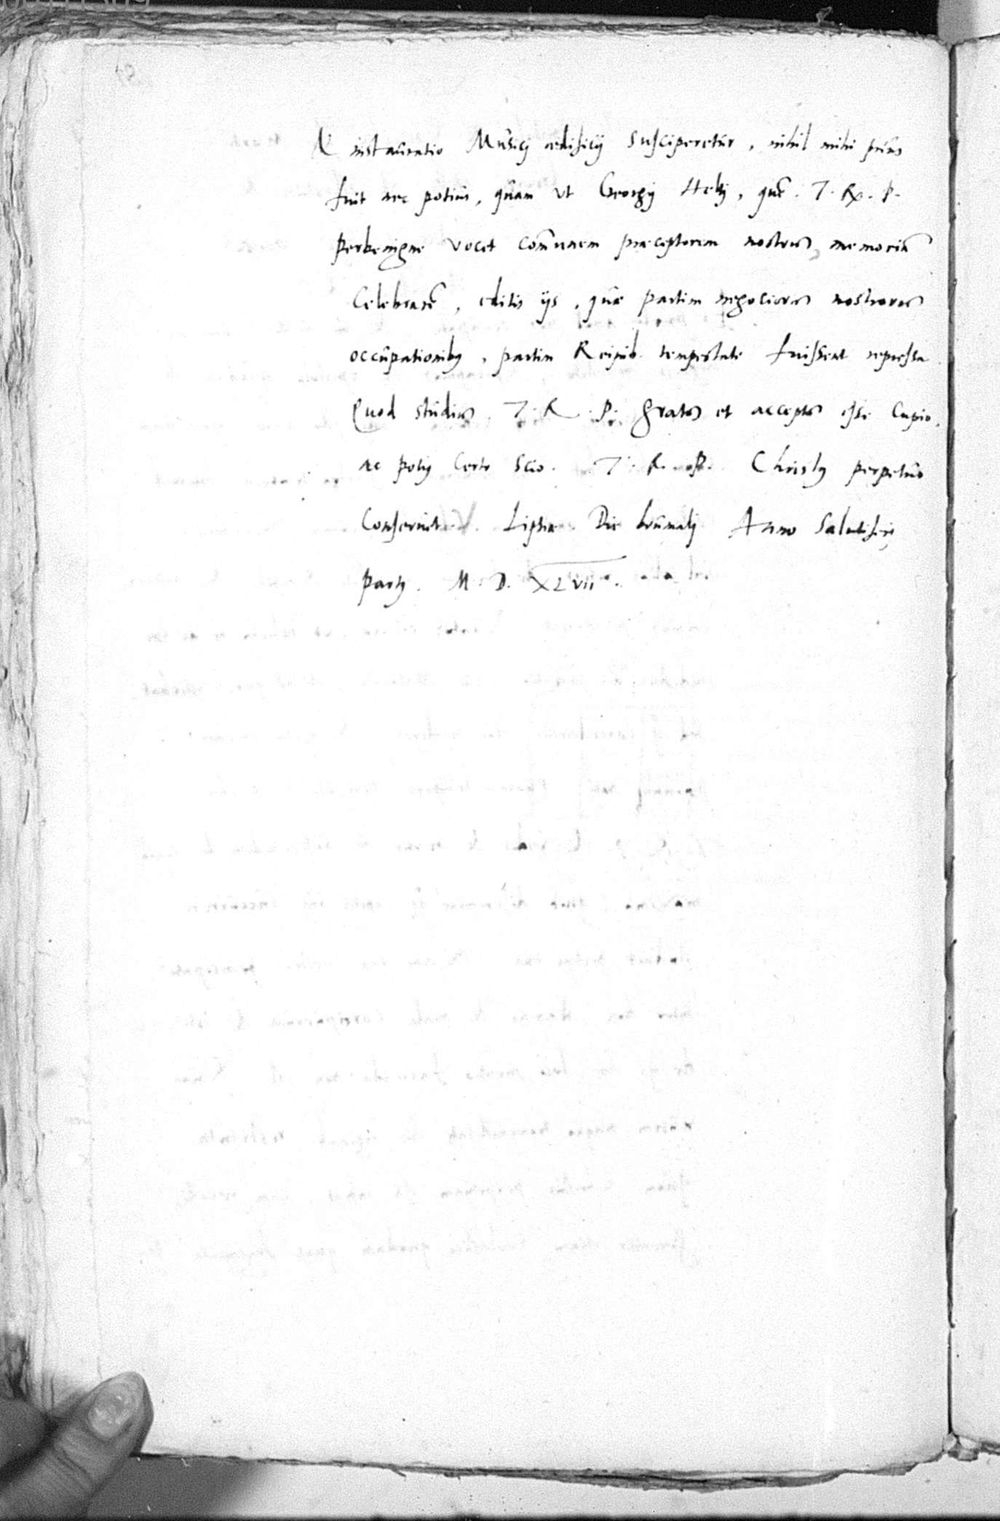 & instauratio Musici ædificij susciperetur, nihil mihi prius
fuit nec potius, quam ut Georgij Heltj, quẽ. T. Rx. P.
perbenigne vocet com̃unem præceptorem nostrum, memoriã
Celebrarẽ, editis ijs, quæ partim negociorum nostrorum
occupationibus, partim Reipub. tempestate fuissent repressa.
Quod studium. T. R. P. gratum et acceptum esse Cupio,
ac potius Certo Scio. T. R. P. Christus perpetuo
Conservet. Lipsiæ. Die brumalj Anno Salutiferi
partus. M. D. XLVII.